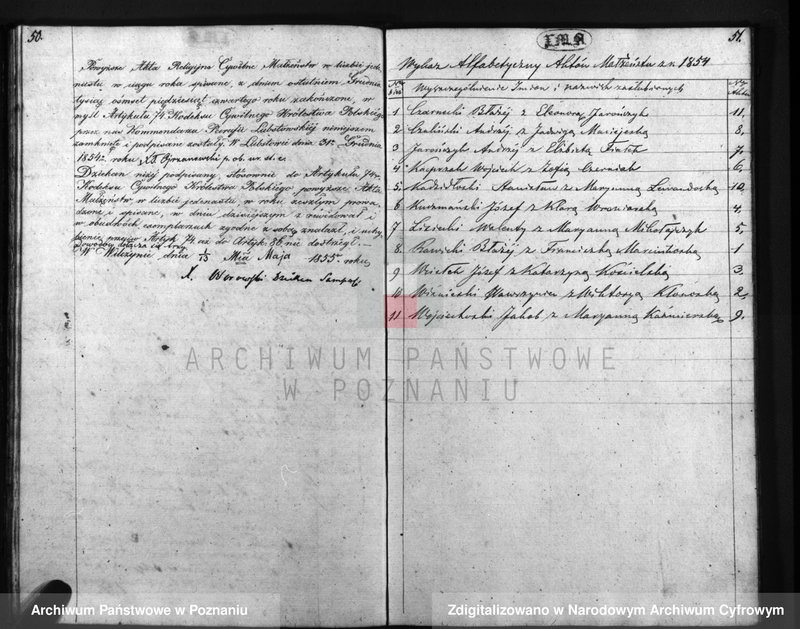 50.
Powyższe Akta Religijno Cywilne Małżeństw w liczbie jede-
nastu w ciągu roku spisane, z dniem ostatnim Grudnia
tysiąc ośmset piędziesiąt czwartego roku zakończone, w
myśl Artykułu 74 Kodeksu Cywilnego Królestwa Polskiego
przez nas Kommendarza Parafii Lubstowskiej niniejszem
zamknięte i podpisane zostały. W Lubstowie dnia 31. Grudnia
1854. roku
Dziekan niżéj podpisany, stósownie do Artykułu 74.
Kodeksu Cywilnego Królestwa Polskiego powyższe Akta
Małżeństw, w liczbie jedenastu, w roku zeszłym prowa-
dzone i spisane, w dniu dzisiejszym zrewidował i
w obudwóch exemplarzach zgodne z sobą znalazł, i uchy-
bienia przeciw Artyk. 74 aż do Artyk. 86 nie dostrzegł.
W Wilczynie dnia 3/15 Mca Maja 1855. roku
X. Borowski Dziekan
IMA
51.
Wykaz Alfabetyczny Aktów Małżeństw z r. 1854
Wyszczególnienie Imion i nazwisk zaślubionych
No Aktu
1 Czarnecki Błażéj z Eleonorą Jarończyk 11.
2 Czabiński Andrzéj z Jadwigą Maciejeską 8.
3 Jarończyk Andrzéj z Elżbietą 7.
4 Kacprzak Wojciech z Zofią Czerniak 6.
5 Kadzidłoski Stanisław z Maryanną Lewandoską 10.
6 Kuczmański Józef z Klarą 4.
7 Lisiecki Walenty z Maryanną Mikołajczyk 5.
8 Rawicki Błażéj z Franciszką Marcinkoską 1
9 Józef z Katarzyną Kosielską 3.
10 Winiecki Wawrzyniec z Wiktoryą Kłososką 2.
11 Wojciechoski Jakób z Maryanną Kaźmierską 9.
ARCHIWUM PAŃSTWOWE
W POZNANIU
Archiwum Państwowe w Poznaniu
Zdigitalizowano w Narodowym Archiwum Cyfrowym